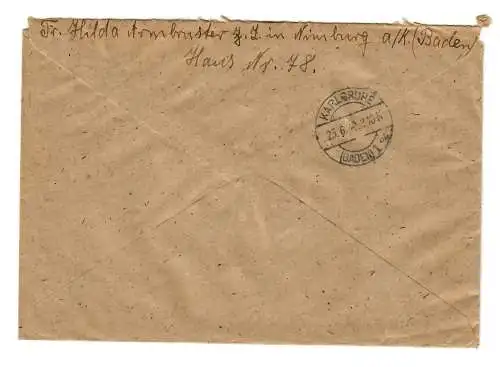 Fr. Hilda Armbruster z. Z. in Nimburg a/K. (Baden)
Haus Nr. 78.
KARLSRUHE
(BADEN) 1